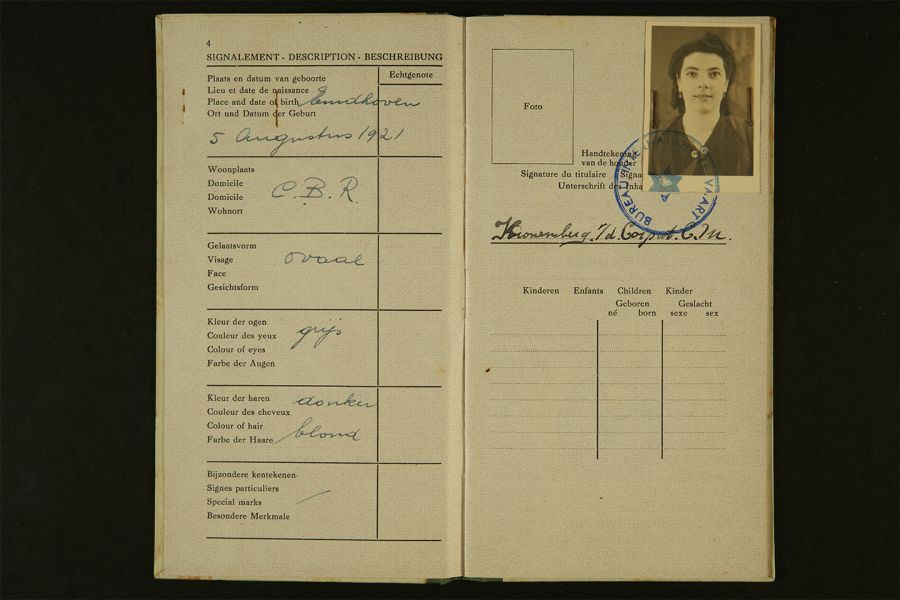 4
SIGNALEMENT - DESCRIPTION - BESCHREIBUNG
Plaats en datum van geboorte
Echtgenote
Lieu et date de naissance
Place and date of birth Eindhoven
Ort und Datum der Geburt
5 Augustus 1921
Woonplaats
Domicile
Domicile C.B.R.
Wohnort
Gelaatsvorm
Visage ovaal
Face
Gesichtsform
Kleur der ogen
Couleur des yeux grijs
Colour of eyes
Farbe der Augen
Kleur der haren donker
Couleur des cheveux
Colour of hair blond
Farbe der Haare
Bijzondere kentekenen
Signes particuliers
Special marks
Besondere Merkmale
Foto
Handtekening
van de houder
Signature du titulaire Signa
Unterschrift des Inha
BUREAU VAART
Kronenberg
Kinderen Enfants Children Kinder
Geboren Geslacht
né born sexe sex